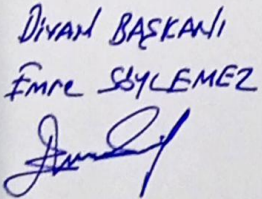 DİVAN BAŞKANI
Emre SÖYLEMEZ